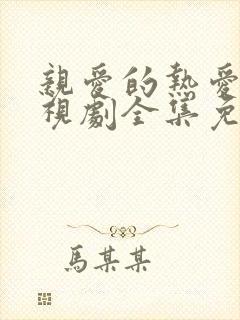 親愛的熱愛
視劇全集免
馬某某